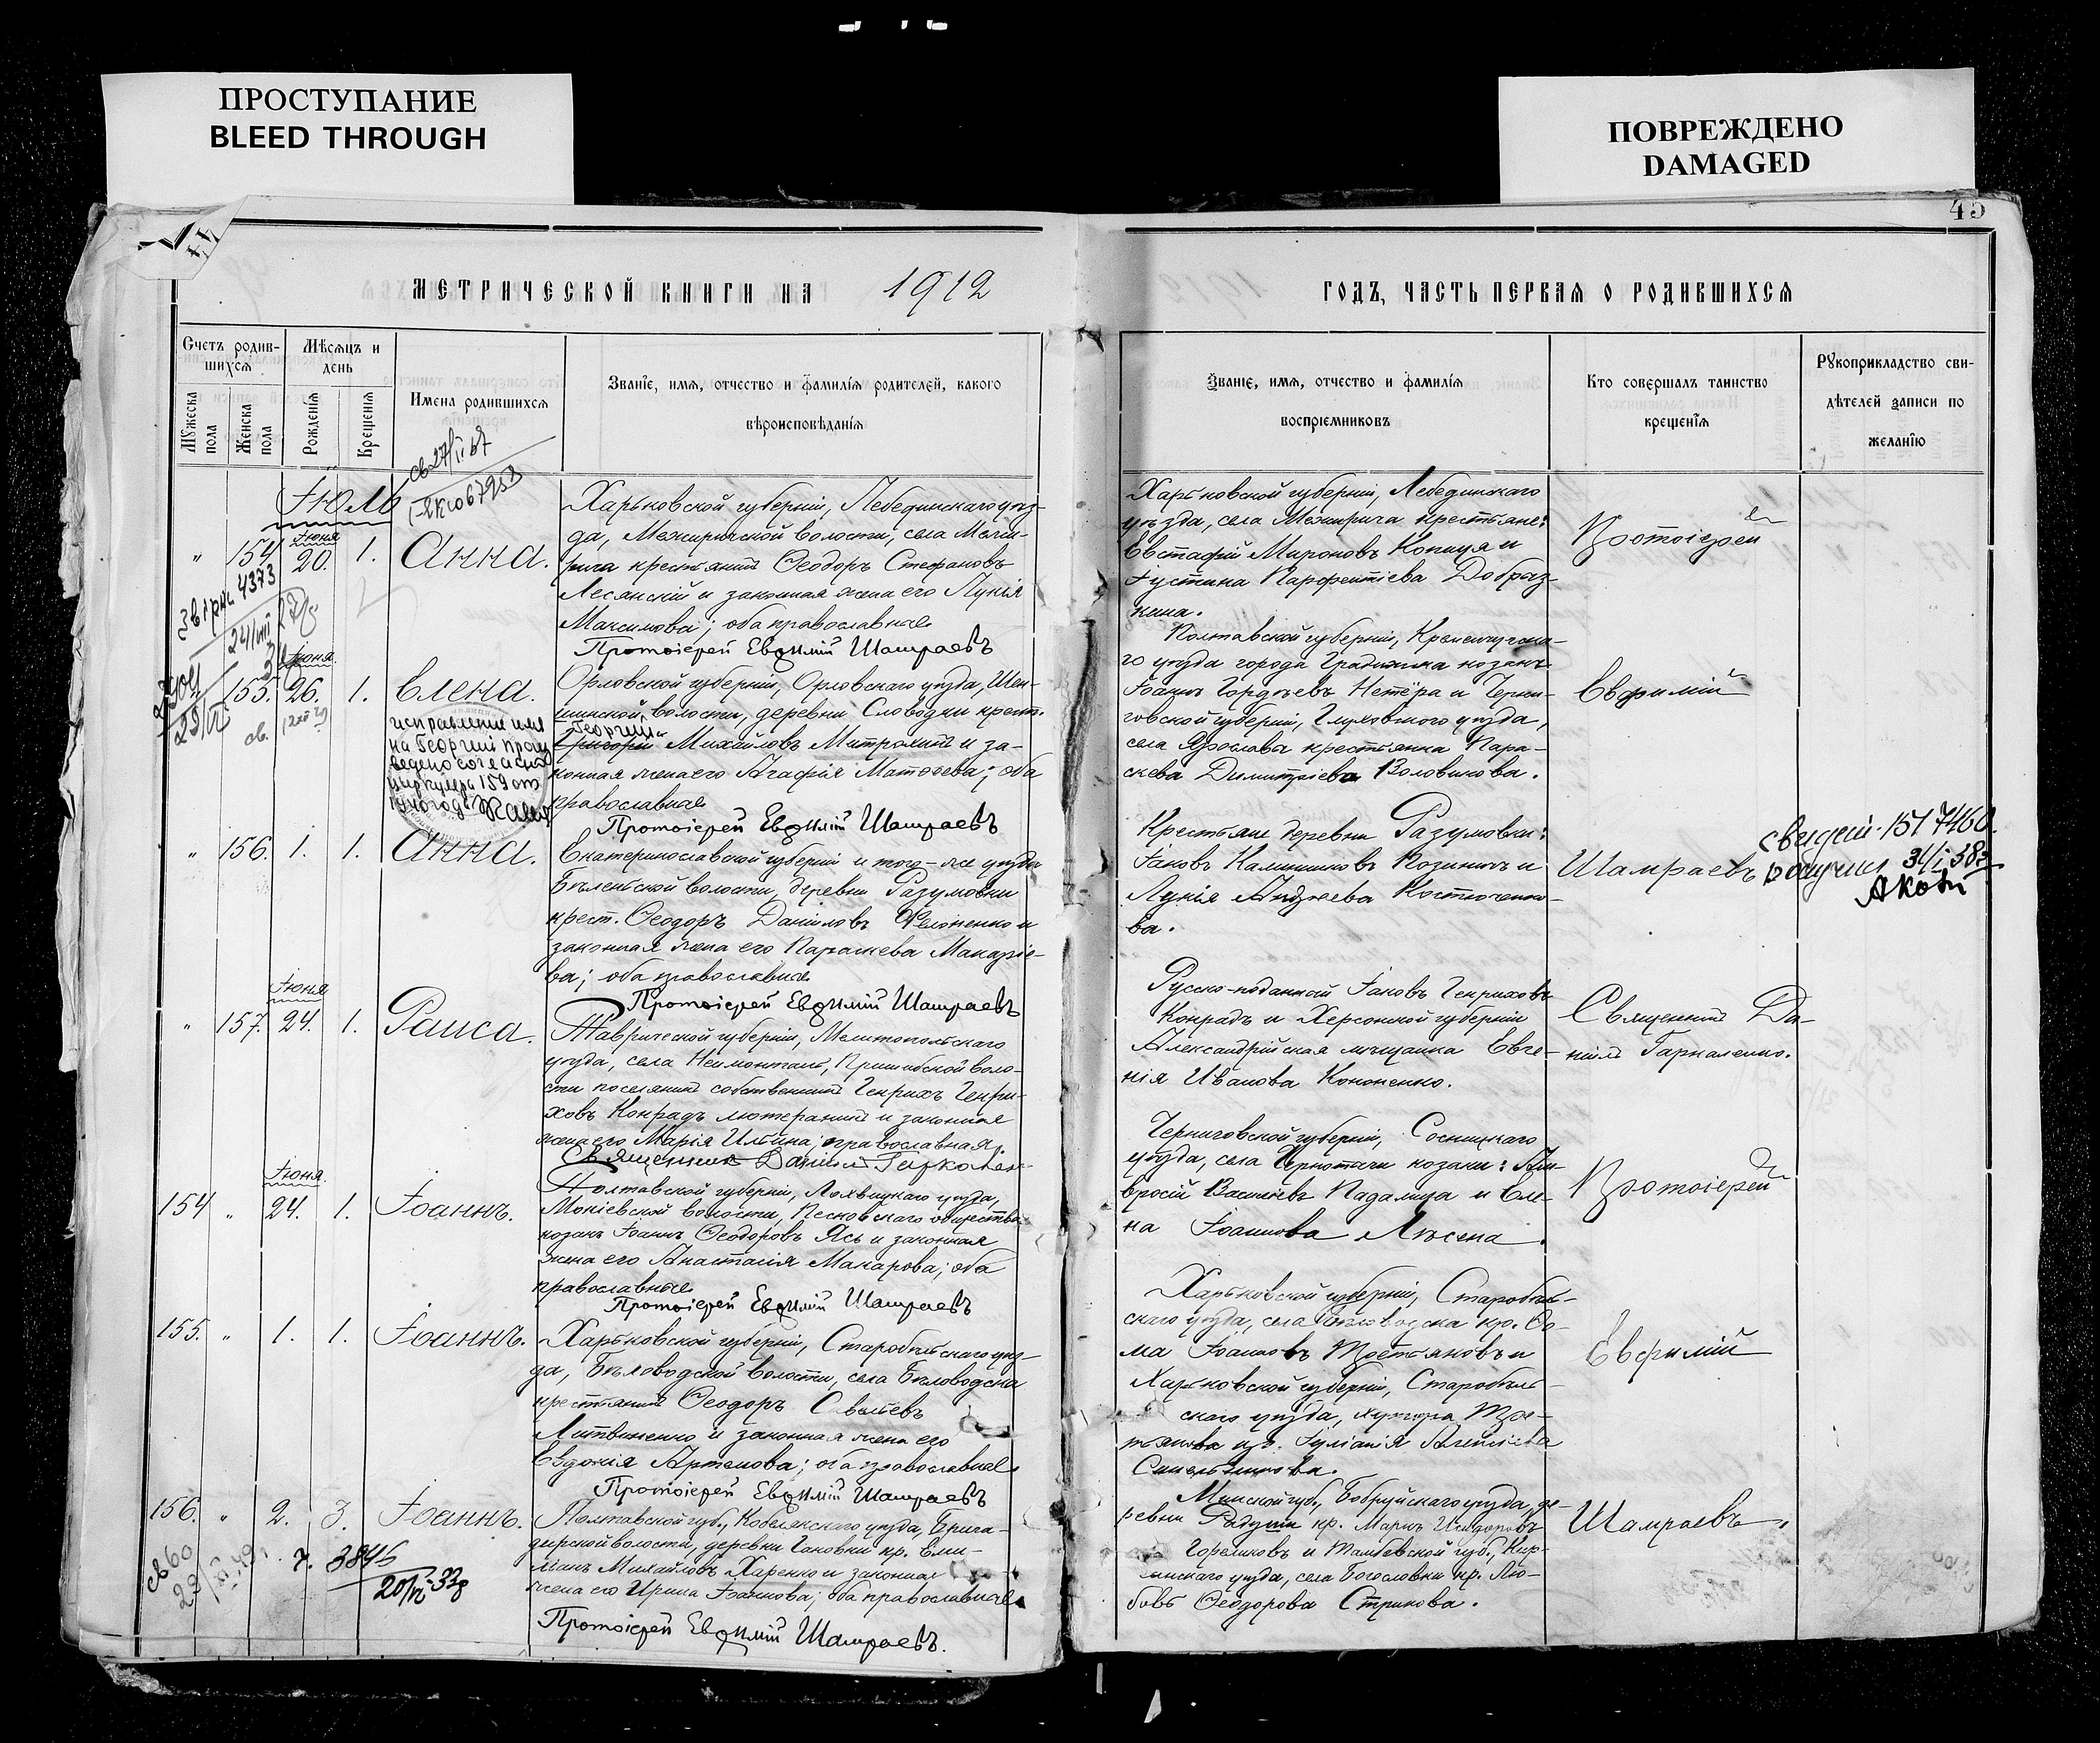 ПРОСТУПАНИЕ
BLEED THROUGH
ПОВРЕЖДЕНО
DAMAGED
45
МЕТРИЧЕСКОЙ КНИГИ НА 1912
ГОДЪ, ЧАСТЬ ПЕРВАЯ О РОДИВШИХСЯ
Счетъ родив-
шихся
Мужеска пола
Женска пола
Мѣсяцъ и
день
Рожденія
Крещенія
Имена родившихся
Званіе, имя, отчество и фамилія родителей, какого
вѣроисповѣданія
Званіе, имя, отчество и фамилія
воспріемниковъ
Кто совершалъ таинство
крещенія
Рукоприкладство сви-
дѣтелей записи по
желанію
Іюль
" 154 Іюня 20. 1. Анна.
Харьковской губерніи, Лебединскаго уѣз-
да, Межиричской волости, села Межи-
рича крестьянинъ Ѳеодоръ Стефановъ
Лесянскій и законная жена его Лукія
Максимова; оба православные
Протоіерей Евѳимій Шамраевъ
Харьковской губерніи, Лебединскаго
уѣзда, села Межирича крестьяне:
Евстафій Мироновъ Копиця и
Іустина Парфентіева Добряз-
кина.
Протоіерей
" 155. Іюня 26. 1. Елена.
исправление имя
на Георгий произ
ведено согласно
циркуляра 159 от
Орловской губерніи, Орловскаго уѣзда,
волости, деревни Слободки крест.
Георгий
Григорій Михайловъ Митрохинъ и за-
конная жена его Агафія Матѳеева; оба
православные
Протоіерей Евѳимій Шамраевъ
Полтавской губерніи, Кременчугска-
го уѣзда города Градижска козакъ
Іоаннъ Гордѣевъ Нетёра и Черни-
говской губерніи, Глуховского уѣзда,
села Ярославца крестьянка Пара-
скева Димитріева Воловикова.
Евфимій
" 156. 1. 1. Анна.
Екатеринославской губерніи и того-же уѣзда
Бѣленьской волости, деревни Разумовки
крест. Ѳеодоръ Даніиловъ Филоненко и
законная жена его Параскева Макаріе-
ва; оба православные
Протоіерей Евѳимій Шамраевъ
Крестьяне деревни Разумовки:
Іаковъ Калинниковъ Козиничъ и
Лукія Андреева Костюченко-
ва.
Шамраевъ
свидет. 1517460
получил 31/I 38г
" 157. Іюня 24. 1. Раиса.
Таврической губерніи, Мелитопольскаго
уѣзда, села Неимонталь, Пришибской воло-
сти поселянинъ собственникъ Генрихъ Генри-
ховъ Конрадъ лютеранинъ и законная
жена его Марія Ильина; православная.
Священник Даніил Гаркален
Русско-поданный Іаковъ Генриховъ
Конрадъ и Херсонской губерніи
Александрійская мѣщанка Евге-
нія Иванова Кононенко.
Священникъ Да-
ніилъ Гаркаленко.
154 " Іюня 24. 1. Іоаннъ.
Полтавской губерніи, Лохвицкаго уѣзда,
Мокіевской волости, Песковскаго общества
козакъ Іоаннъ Ѳеодоровъ Ясь и законная
жена его Анастасія Макарова; оба
православные
Протоіерей Евѳимій Шамраевъ
Черниговской губерніи, Сосницкаго
уѣзда, села Чернотичи козаки: Ам-
вросій Васильевъ Падалица и Еле-
на Іоаннова Лѣсена.
Протоіерей
155. " 1. 1. Іоаннъ.
Харьковской губерніи, Старобѣльскаго уѣз-
да, Бѣловодской волости, села Бѣловодска
крестьянинъ Ѳеодоръ Савельевъ
Литвиненко и законная жена его
Евдокія Артемова; оба православные
Протоіерей Евѳимій Шамраевъ
Харьковской губерніи, Старобѣль-
скаго уѣзда, села Бѣловодска кр. Ѳо-
ма Іоанновъ Третьяковъ и
Харьковской губерніи, Старобѣль-
скаго уѣзда, хутора Тре-
тьякова кр. Іуліанія Алексѣева
Синельникова.
Евфимій
156. " 2. 3. Іоаннъ.
Полтавской губ., Кобелякскаго уѣзда, Брига-
дирской волости, деревни Гановки кр. Еми-
ліанъ Михайловъ Харенко и законная
жена его Ирина Іоаннова; оба православные
Протоіерей Евѳимій Шамраевъ.
Минской губ., Бобруйскаго уѣзда, де-
ревни Радуши кр. Маркъ Исидоровъ
Гореликовъ и Тамбовской губ., Кир-
скаго уѣзда, села Богословки кр. Лю-
бовь Ѳеодорова Стрикова.
Шамраевъ.
3846